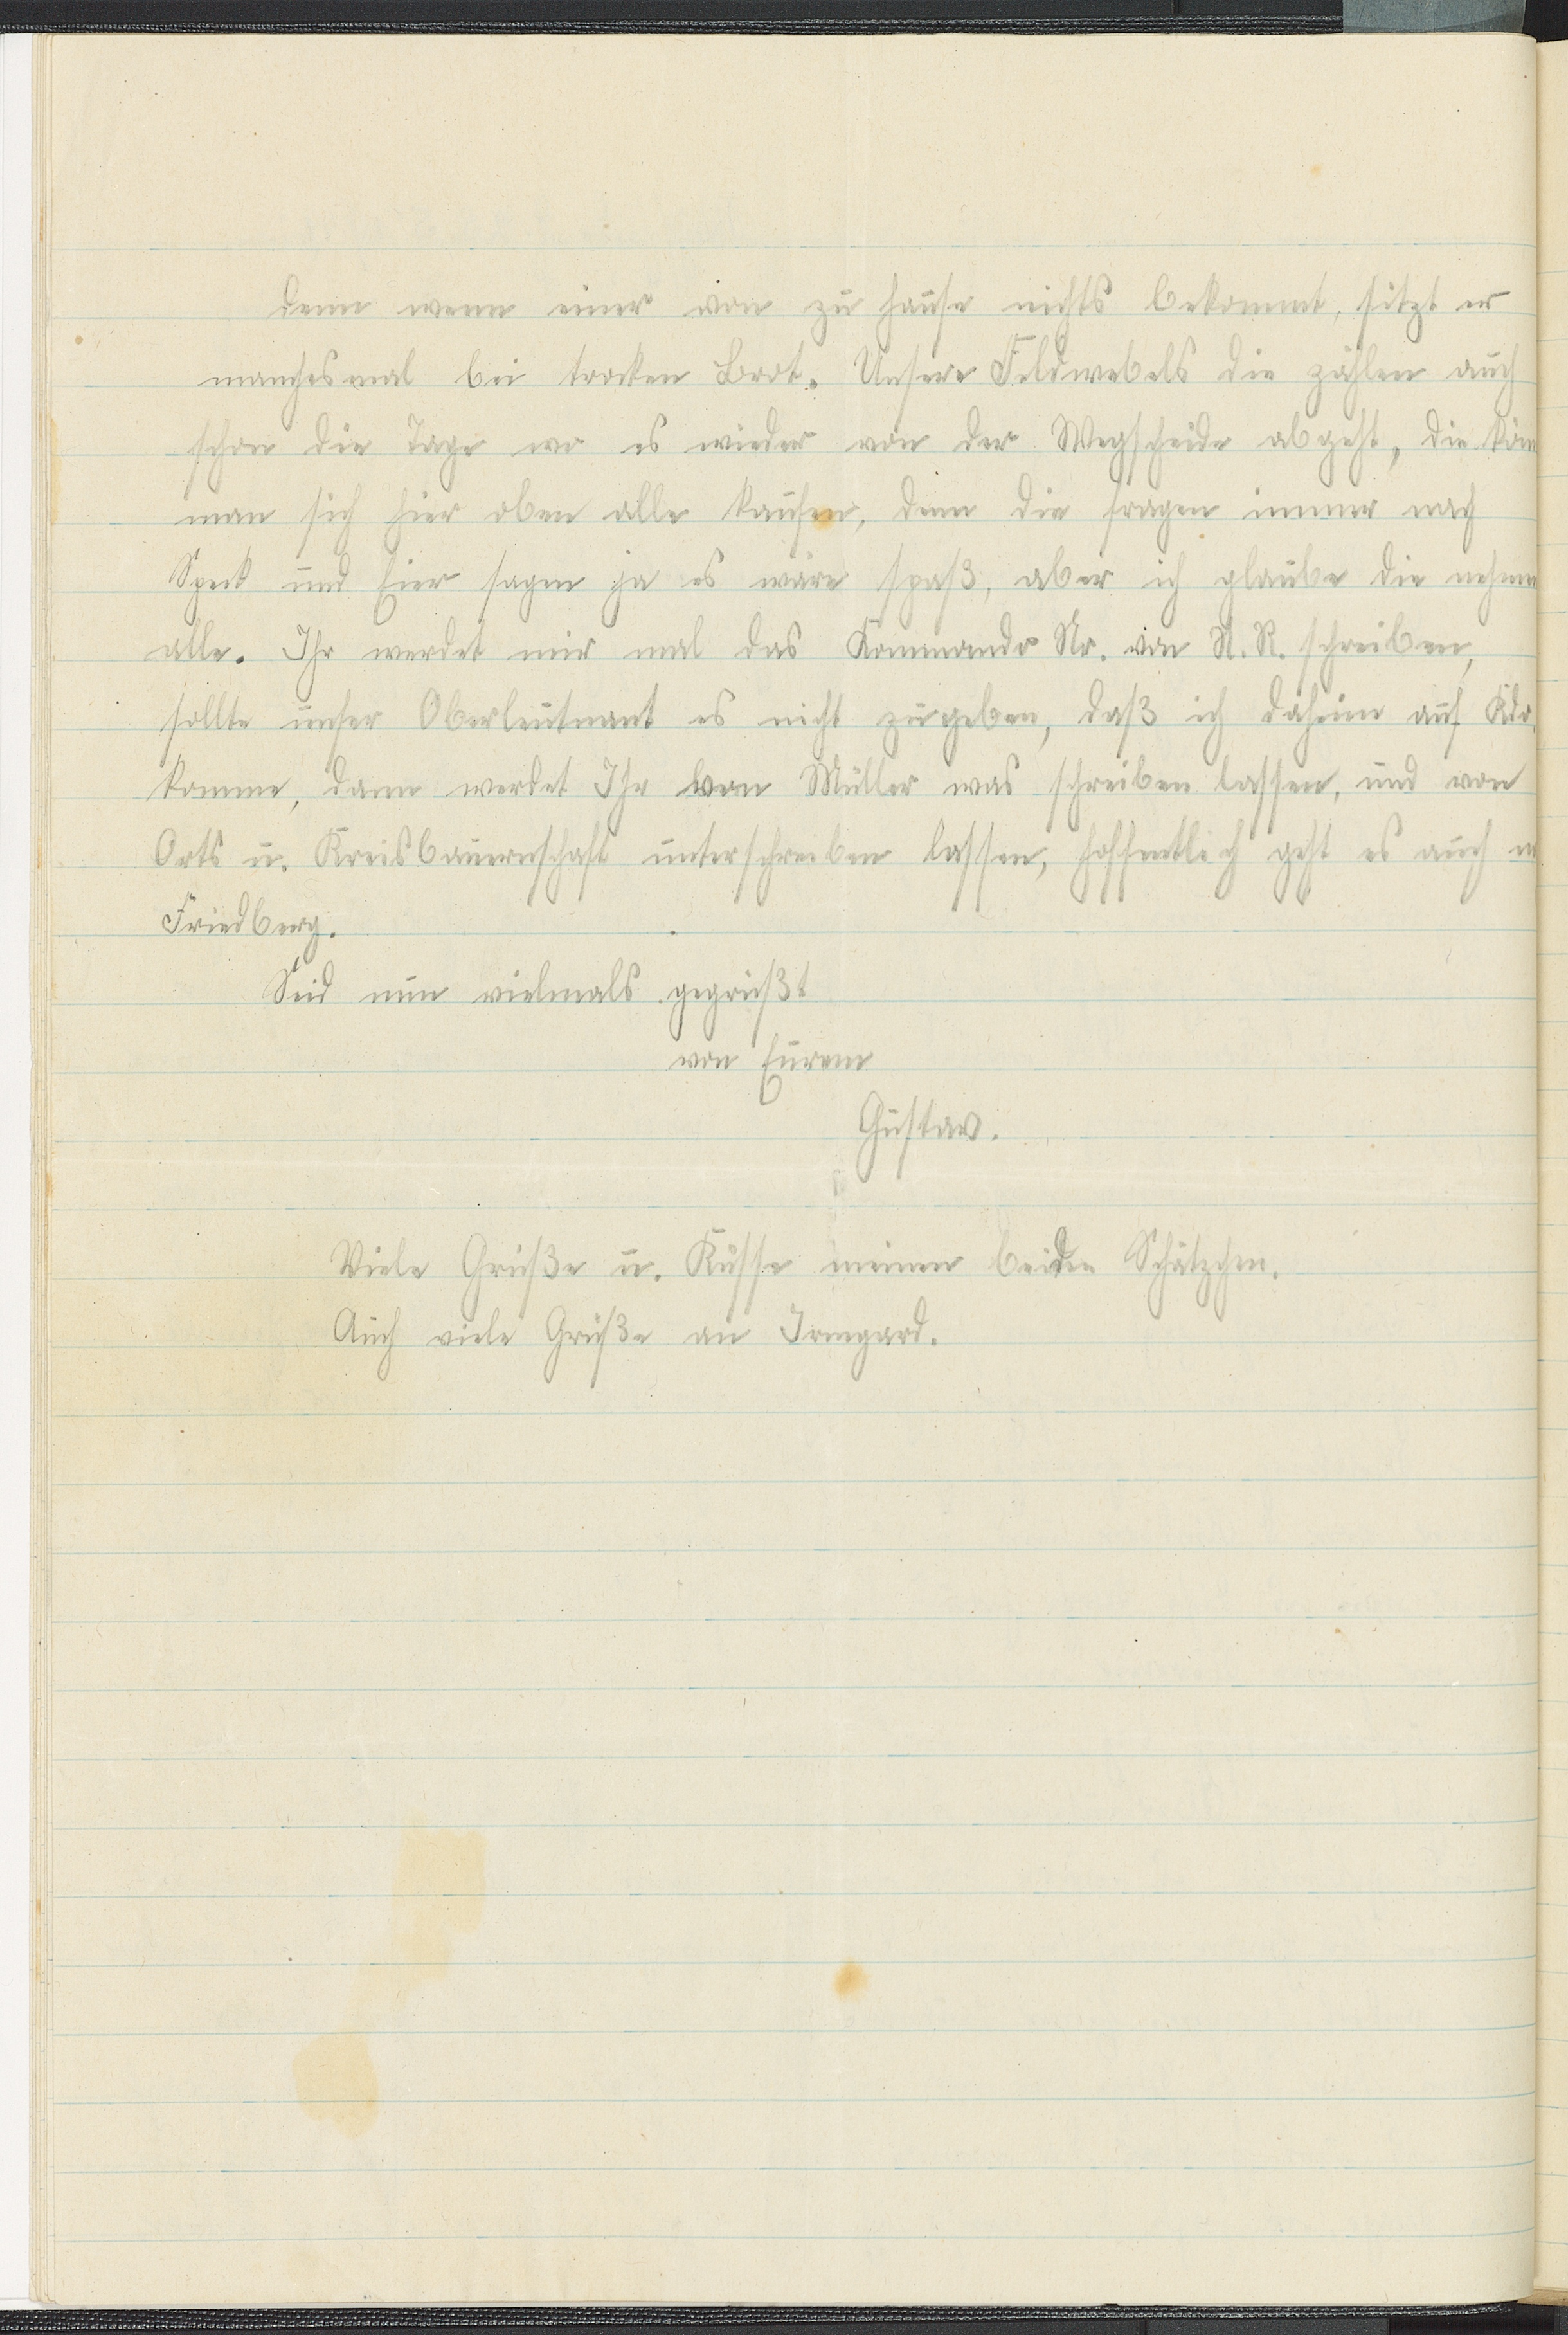 denn wenn einer von zu hause nichts bekommt, sitzt er
manchesmal bei trocken Brot. Unsere Feldwebels die zählen auch
schon die Tage wo es wieder von der Wegscheide abgeht, die kön
man sich hier oben alle kaufen, denn die fragen immer nach
Speck und Eier sagen ja es wäre spaß, aber ich glaube die nehmen
alle. Ihr werdet mir mal das Kommando Nr. von N. R. schreiben,
sollte unser Oberleutnant es nicht zugeben, daß ich daheim auf Kdo.
komme, dann werdet Ihr von Müller was schreiben lassen, und von
Orts u. Kreisbauernschaft unterschreiben lassen, hoffentlich geht es auch
Friedberg.
Seid nun vielmals gegrüßt
von Eurem
Gustav.
Viele Grüße u. Küsse meinen beiden Schätzchen.
Auch viele Grüße an Irmgard.